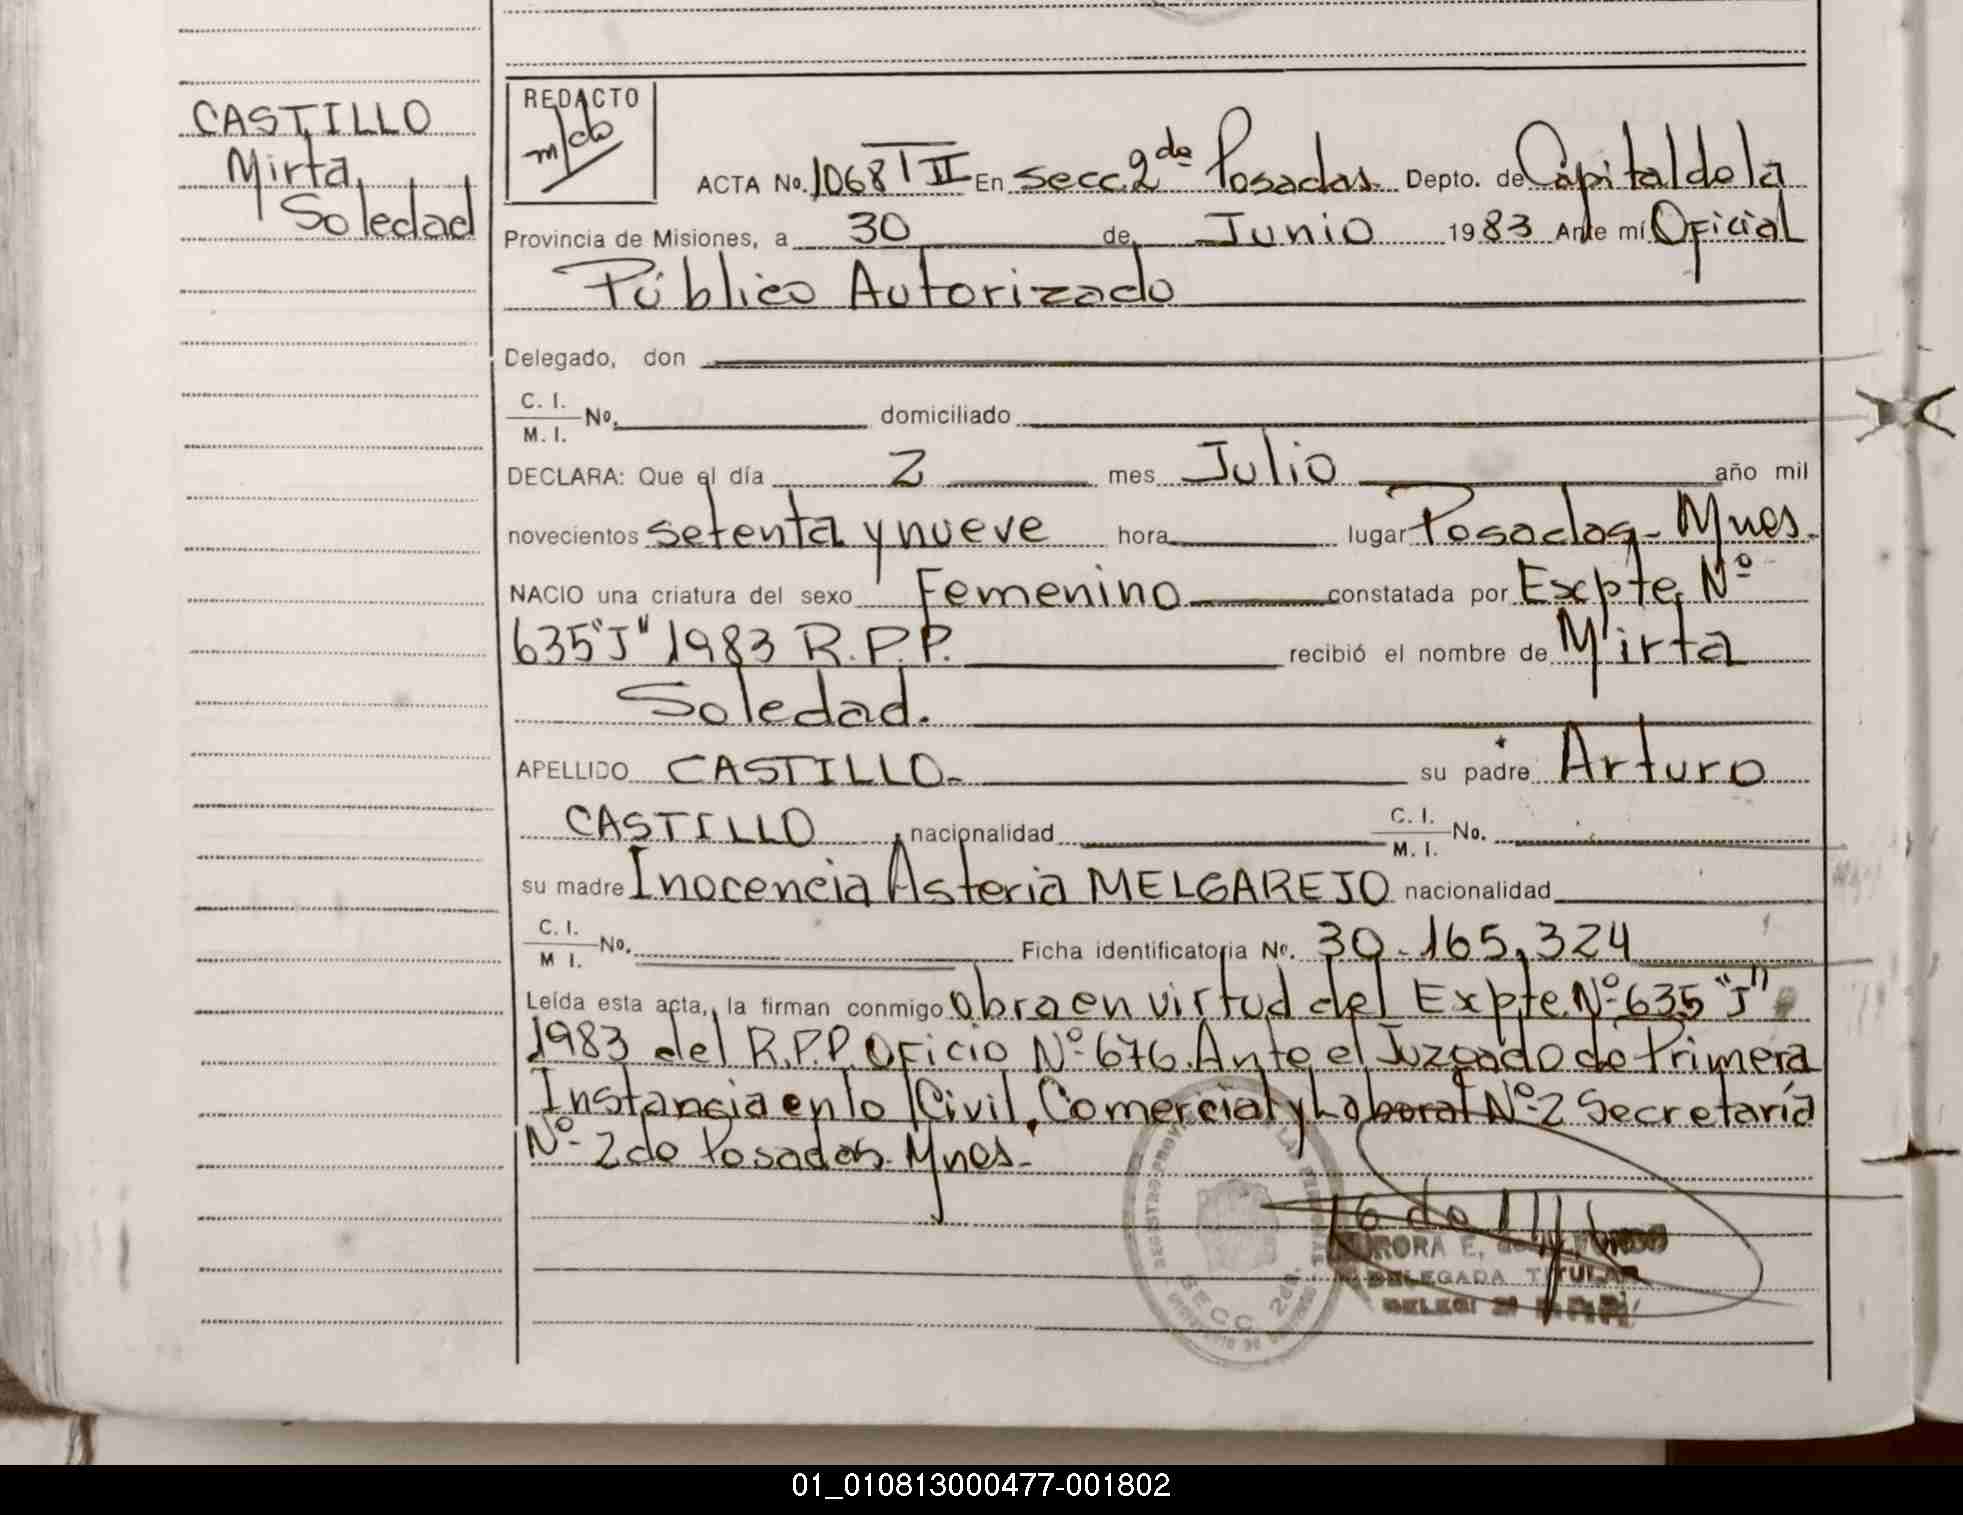 CASTILLO
Mirta
Soledad
REDACTO
ACTA No. 1068 T II En secc. 2da Posadas. Depto. de Capital de la
Provincia de Misiones, a 30 de Junio 1983 Ante mí Oficial
Público Autorizado
Delegado, don
C. I.
M. I. No. domiciliado
DECLARA: Que el día 2 mes Julio año mil
novecientos setenta y nueve hora lugar Posadas - Mnes.
NACIO una criatura del sexo Femenino constatada por Excpte. Nº
635 "J" 1983 R.P.P. recibió el nombre de Mirta
Soledad.
APELLIDO CASTILLO.- su padre Arturo
CASTILLO, nacionalidad C. I. M. I. No.
su madre Inocencia Asteria MELGAREJO nacionalidad
C. I. M I. No. Ficha identificatoria No. 30.165.324
Leída esta acta, la firman conmigo obra en virtud del Expte. Nº 635 "J"
1983 del R.P.P. Oficio Nº 676. Ante el Juzgado de Primera
Instancia en lo Civil, Comercial y Laboral Nº 2 Secretaría
Nº 2 de Posadas. Mnes.-
SECC. 2da.
DELEGADA TITULAR
01_010813000477-001802